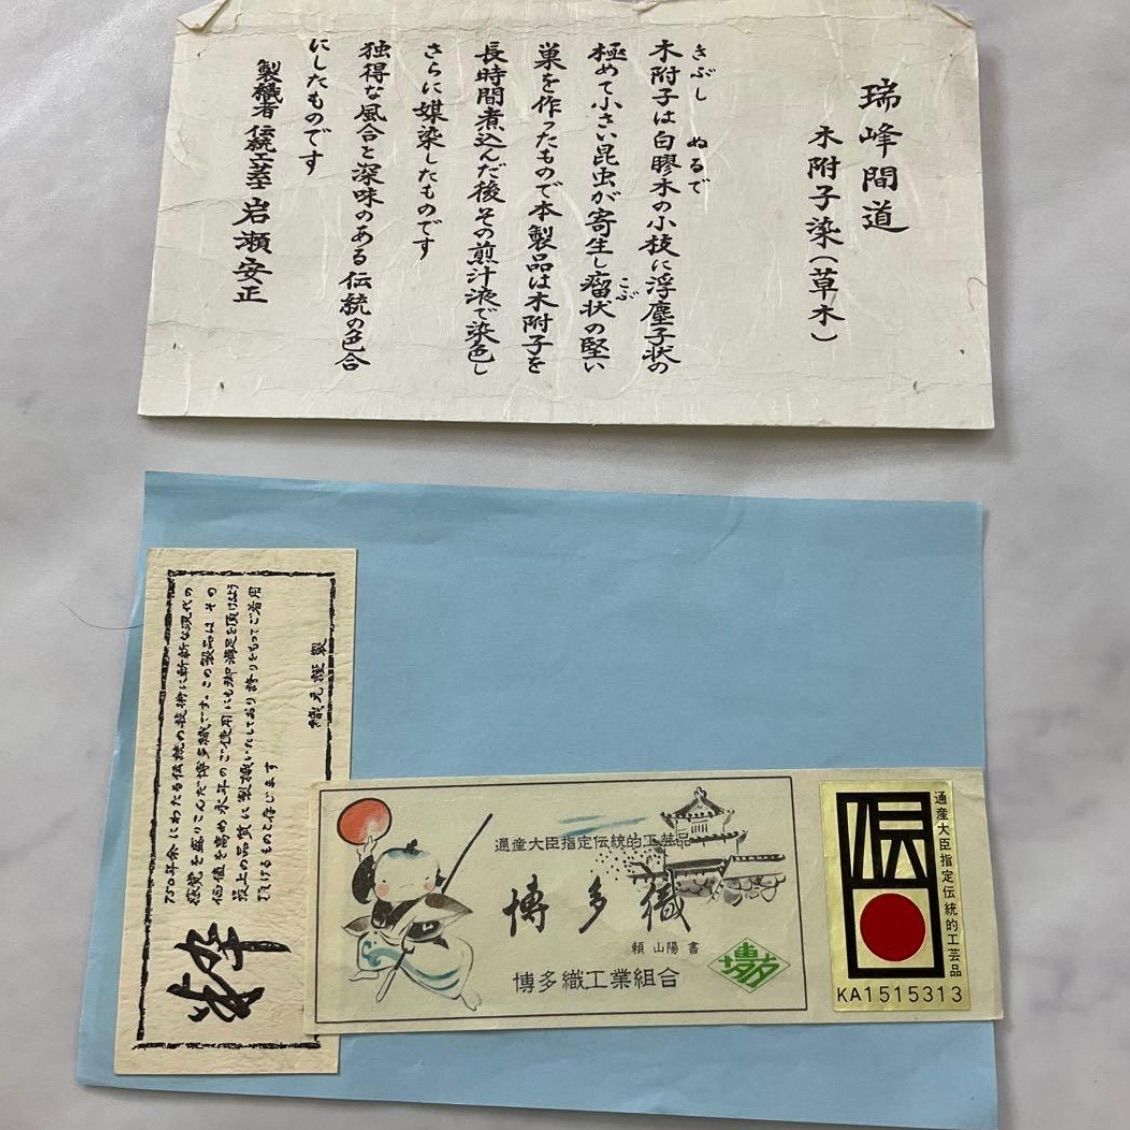 瑞峰間道
木附子染(草木)
きぶし ぬるで
木附子は白膠木の小枝に浮塵子状の
極めて小さい昆虫が寄生し瘤状の堅い
こぶ
巣を作ったもので本製品は木附子を
長時間煮込んだ後その煎汁液で染色し
さらに媒染したものです
独得な風合と深味のある伝統の色合
にしたものです
製織者 伝統工芸士 岩瀬安正
織元謹製
750年余にわたる伝統の技術に斬新な現代の
感覚を盛りこんだ博多織です。この製品は その
価値を高め永年のご使用にも御満足を頂けるよう
最上の品質に製織いたしており誇りをもってご着用
頂けるものと存じます
通産大臣指定伝統的工芸品
博多織
頼山陽書
博多織工業組合
博多
伝
通産大臣指定伝統的工芸品
KA1515313